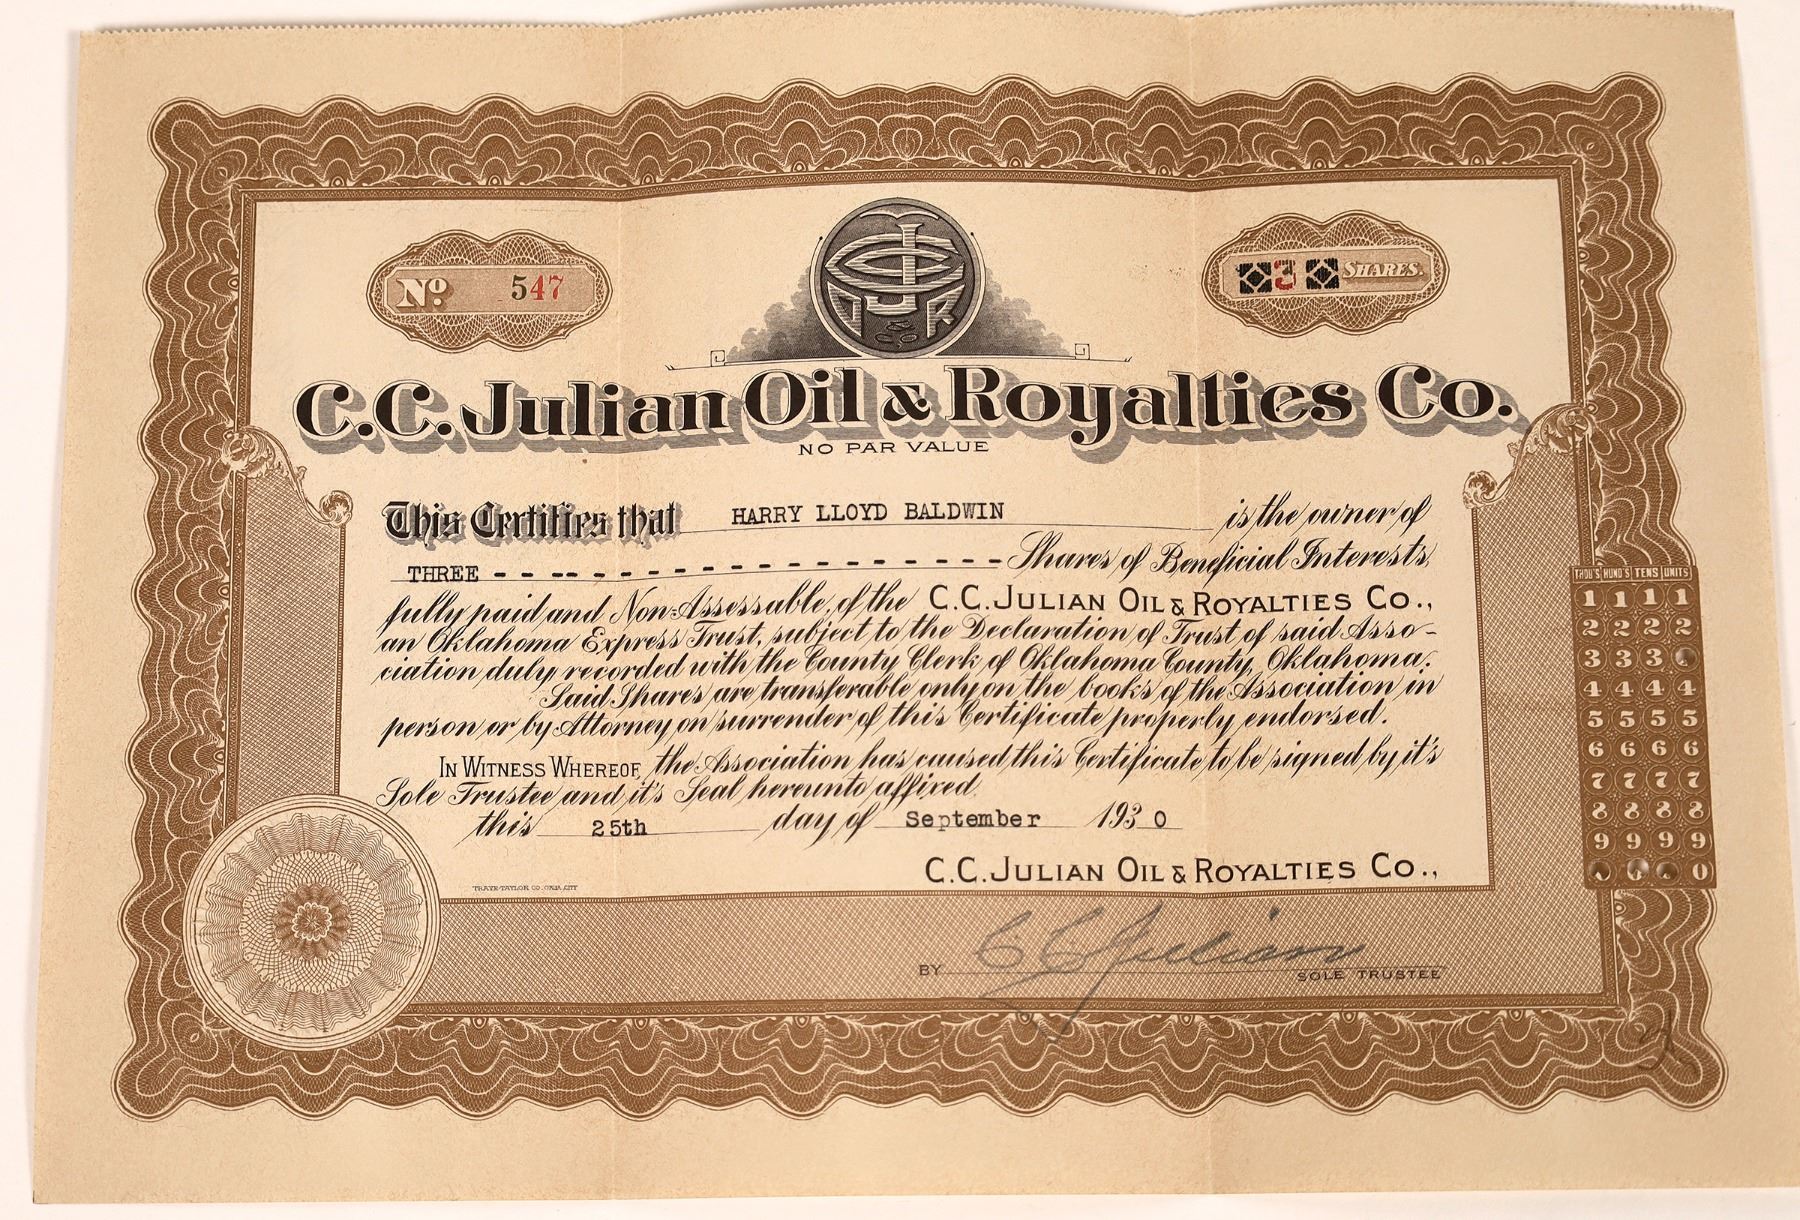 No. 547
CCJ
O&R
Co
3 SHARES.
C.C. Julian Oil & Royalties Co.
NO PAR VALUE
This Certifies that HARRY LLOYD BALDWIN is the owner of
THREE - - - - - - - - - - - - - - - - - - - Shares of Beneficial Interests,
fully paid and Non-Assessable, of the C.C. JULIAN OIL & ROYALTIES CO.,
an Oklahoma Express Trust, subject to the Declaration of Trust of said Asso-
ciation duly recorded with the County Clerk of Oklahoma County, Oklahoma.
Said Shares are transferable only on the books of the Association in
person or by Attorney on surrender of this Certificate properly endorsed.
IN WITNESS WHEREOF, the Association has caused this Certificate to be signed by it's
Sole Trustee and it's Seal hereunto affixed
this 25th day of September 1930
C.C. JULIAN OIL & ROYALTIES CO.,
TRAVE-TAYLOR CO. OKLA. CITY
BY C C Julian
SOLE TRUSTEE
THOU'S HUND'S TENS UNITS
1 1 1 1
2 2 2 2
3 3 3
4 4 4 4
5 5 5 5
6 6 6 6
7 7 7 7
8 8 8 8
9 9 9 9
0